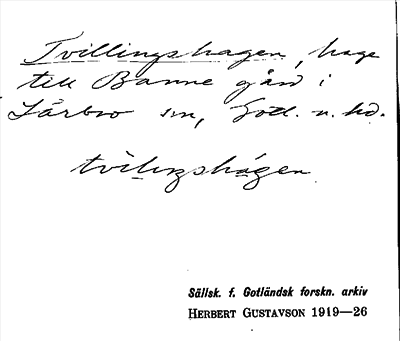 Tvillingshagen, hage
till Banne gård i
Lärbro sn, Gotl. n. hd.
tvìlıŋshágen
Sällsk. f. Gotländsk forskn. arkiv
HERBERT GUSTAVSON 1919—26